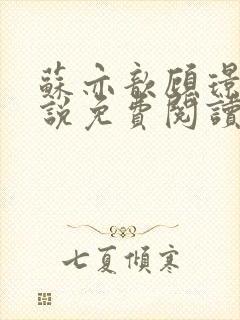 蘇亦歆顧璟
說免費閱讀
七夏傾寒